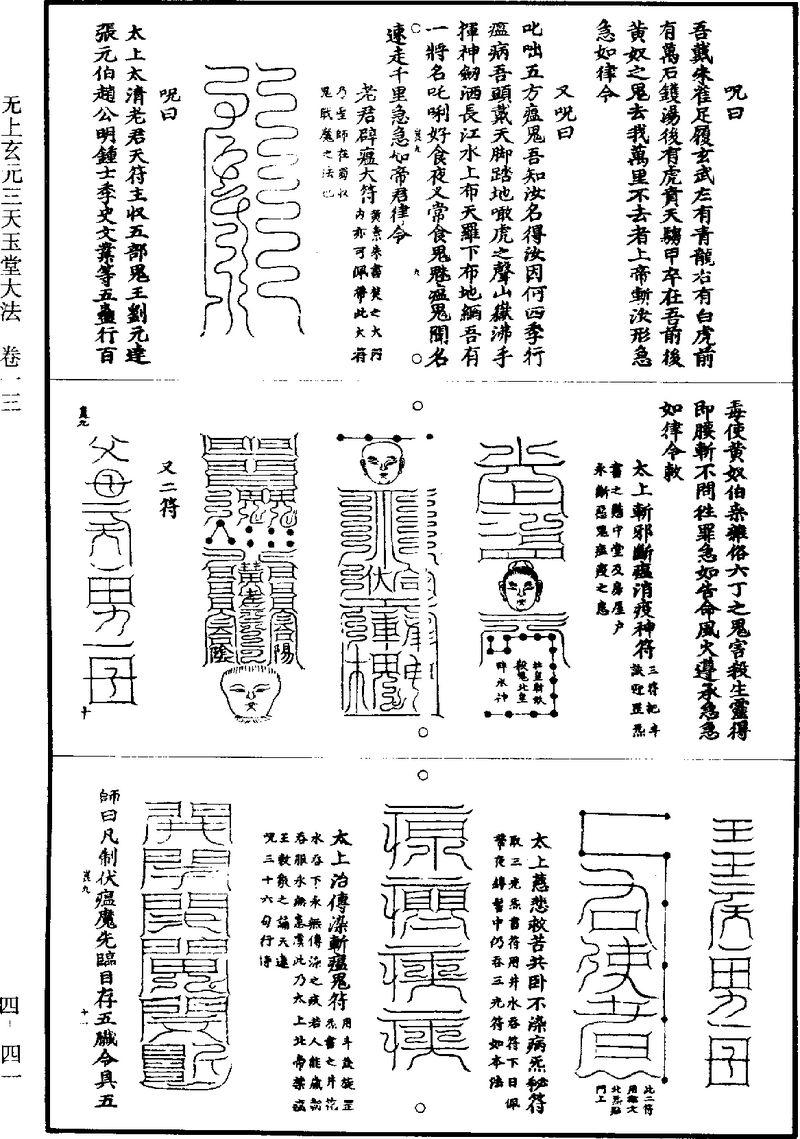 无上玄元三天玉堂大法 卷一三
四-四一
呪曰
吾戴朱雀足履玄武左有青龍右有白虎前
有萬石鑊湯後有虎賁天騶甲卒在吾前後
黃奴之鬼去我萬里不去者上帝斬汝形急
急如律令
又呪曰
叱咄五方瘟鬼吾知汝名得汝因何四季行
瘟病吾頭戴天脚踏地噉虎之聲山嶽沸手
揮神劒洒長江水上布天羅下布地網吾有
一將名吒唎好食夜叉常食鬼魅瘟鬼聞名
速走千里急急如帝君律令
老君辟瘟大符
黃素朱書焚之大門
內亦可佩帶此大符
乃聖師在蜀収
鬼戝魔之法也
呪曰
太上太清老君天符主収五部鬼王劉元達
張元伯趙公明鍾士季史文業等五蠱行百
毒使黃奴伯乘雜俗六丁之鬼害殺生靈得
即腰斬不問徃罪急如告命風火遵承急急
如律令敕
太上斬邪斷瘟消疫神符
三符把斗
書之懸中堂及房屋户
永斷惡鬼瘟疫之患
陽
陰
又二符
此二符
門上
太上慈悲救苦共卧不染病炁秘符
取三光炁書符用井水吞符下日佩
帶夜歸髻中仍吞三光符如本法
太上治傳染斬瘟鬼符
用斗旋罡
炁書之井花
水吞下永無傳染之疾若人能歲朝
吞服永無患虞此乃太上北帝禁瘟
呪三十六句行持
師曰凡制伏瘟魔先臨目存五臟令具五